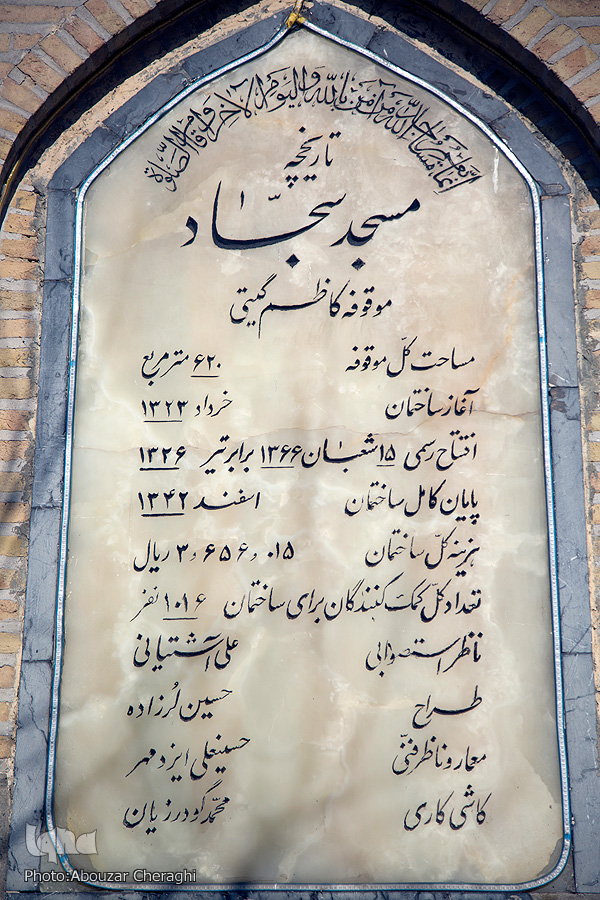 انما یعمر مساجد الله من آمن بالله و الیوم الآخر و اقام الصلوة
تاریخچه
مسجد سجّاد
موقوفه کاظم گیتی
مساحت کلّ موقوفه ۶۲۰ متر مربع
آغاز ساختمان خرداد ۱۳۲۳
افتتاح رسمی ۱۵ شعبان ۱۳۶۶ برابر تیر ۱۳۲۶
پایان کامل ساختمان اسفند ۱۳۴۲
هزینه کلّ ساختمان ۳٫۶۵۶٫۰۱۵ ریال
تعداد کل کمک کنندگان برای ساختمان ۱۰۱۶ نفر
ناظر استصوابی علی آشتیانی
طراح حسین لُرزاده
معمار و ناظر فنّی حسینعلی ایزدمهر
کاشی کاری محمّد گودرزیان
iqna
Photo:Abouzar Cheraghi